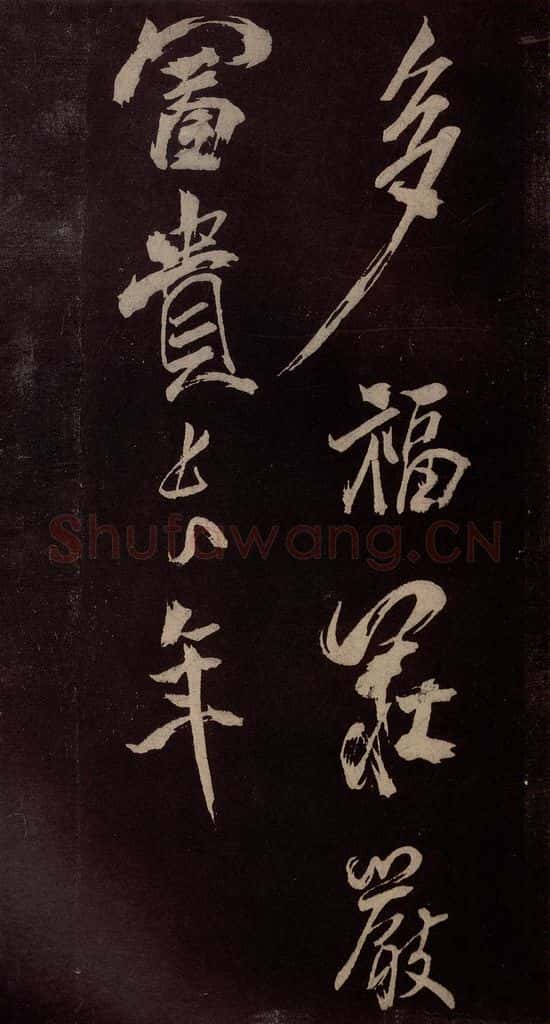 多福莊嚴
富貴長年
Shufawang.CN